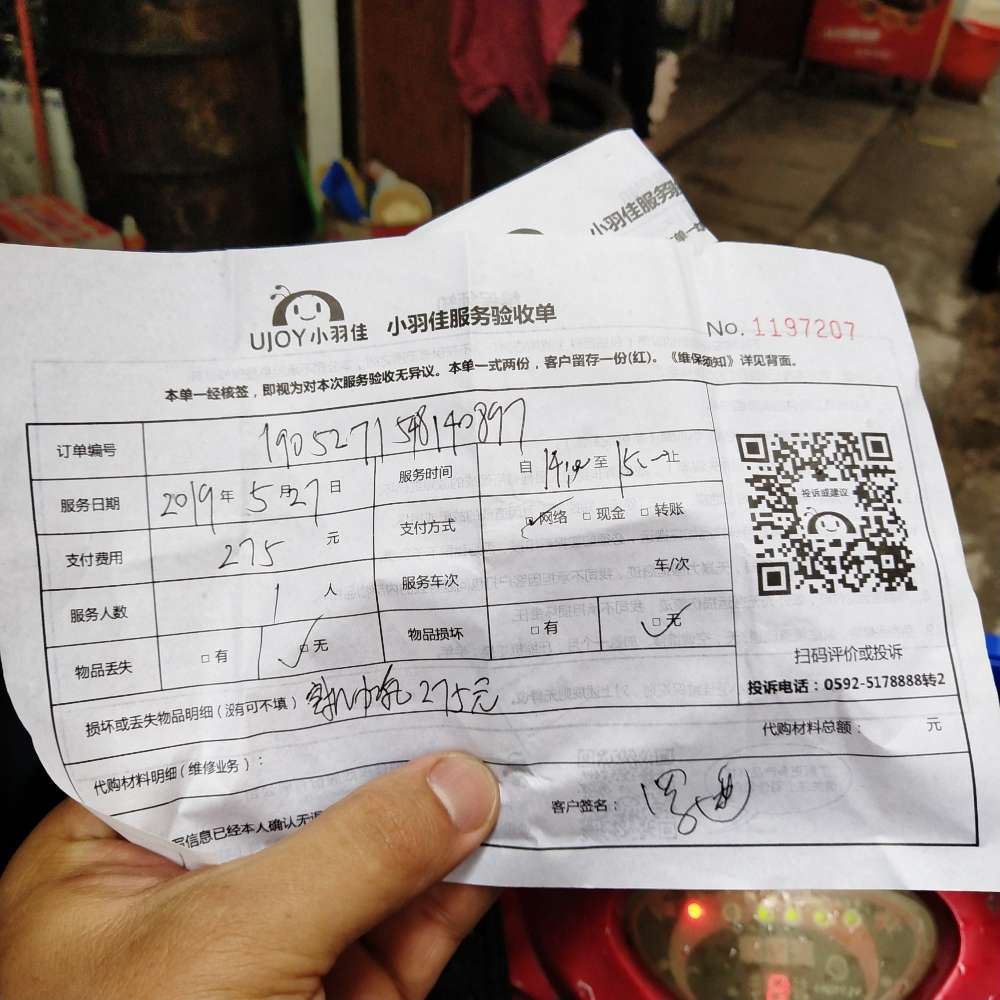 小羽佳服务验
UJOY小羽佳 小羽佳服务验收单
No. 1197207
本单一经核签，即视为对本次服务验收无异议。本单一式两份，客户留存一份(红)。《维保须知》详见背面。
订单编号 190527154814​0897
服务日期 2019年5月27日 服务时间 自 至 止
支付费用 275 元 支付方式 □网络 □现金 □转账
服务人数 1 人 服务车次 车/次
物品丢失 □有 □无 物品损坏 □有 □无
投诉或建议
扫码评价或投诉
投诉电话：0592-5178888转2
损坏或丢失物品明细（没有可不填） 275元
代购材料总额： 元
代购材料明细（维修业务）：
写信息已经本人确认无误
客户签名：